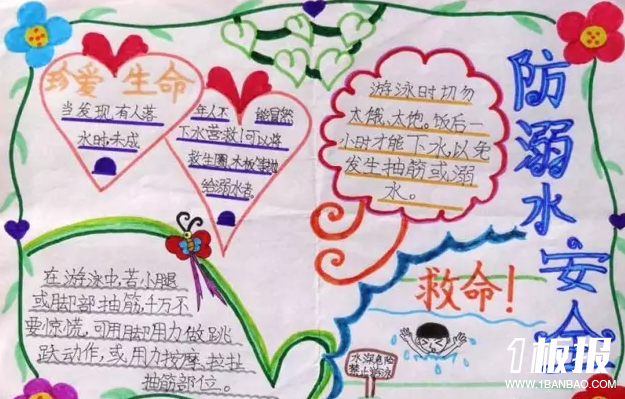 珍爱生命
当发现有人落
水时,未成
年人不能冒然
下水营救!可以将
救生圈、木板等抛
给溺水者。
游泳时切勿
太饿、太饱。饭后一
小时才能下水,以免
发生抽筋或溺
水。
防溺水。安全
在游泳中,若小腿
或脚部抽筋,千万不
要惊慌,可用脚用力做跳
跃动作,或用力按摩、拉扯
抽筋部位。
救命!
水深危险
禁止游泳
1板报
WWW.1BANBAO.COM